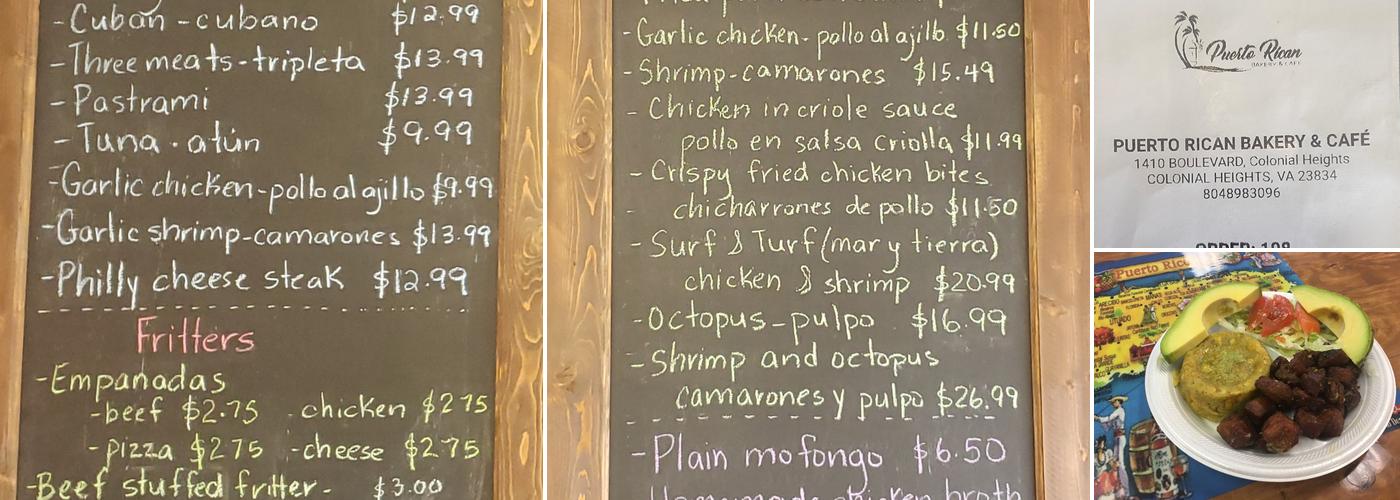 -Cuban-cubano $12.99
-Three meats-tripleta $13.99
-Pastrami $13.99
-Tuna.atún $9.99
-Garlic chicken-pollo al ajillo $9.99
-Garlic shrimp-camarones $13.99
-Philly cheese steak $12.99
Fritters
-Empanadas
-beef $2.75 -chicken $2.75
-pizza $2.75 -cheese $2.75
-Beef stuffed fritter- $3.00
-Garlic chicken-pollo al ajillo $11.50
-Shrimp-camarones $15.49
-Chicken in criole sauce
pollo en salsa criolla $11.99
-Crispy fried chicken bites
- chicharrones de pollo $11.50
-Surf & Turf (mar y tierra)
chicken & shrimp $20.99
-Octopus-pulpo $16.99
-Shrimp and octopus
camarones y pulpo $26.99
-Plain mofongo $6.50
Homemade chicken broth
Puerto Rican
BAKERY & CAFE
PUERTO RICAN BAKERY & CAFÉ
1410 BOULEVARD, Colonial Heights
COLONIAL HEIGHTS, VA 23834
8048983096
ORDER: 108
Puerto Rico
UTUADO